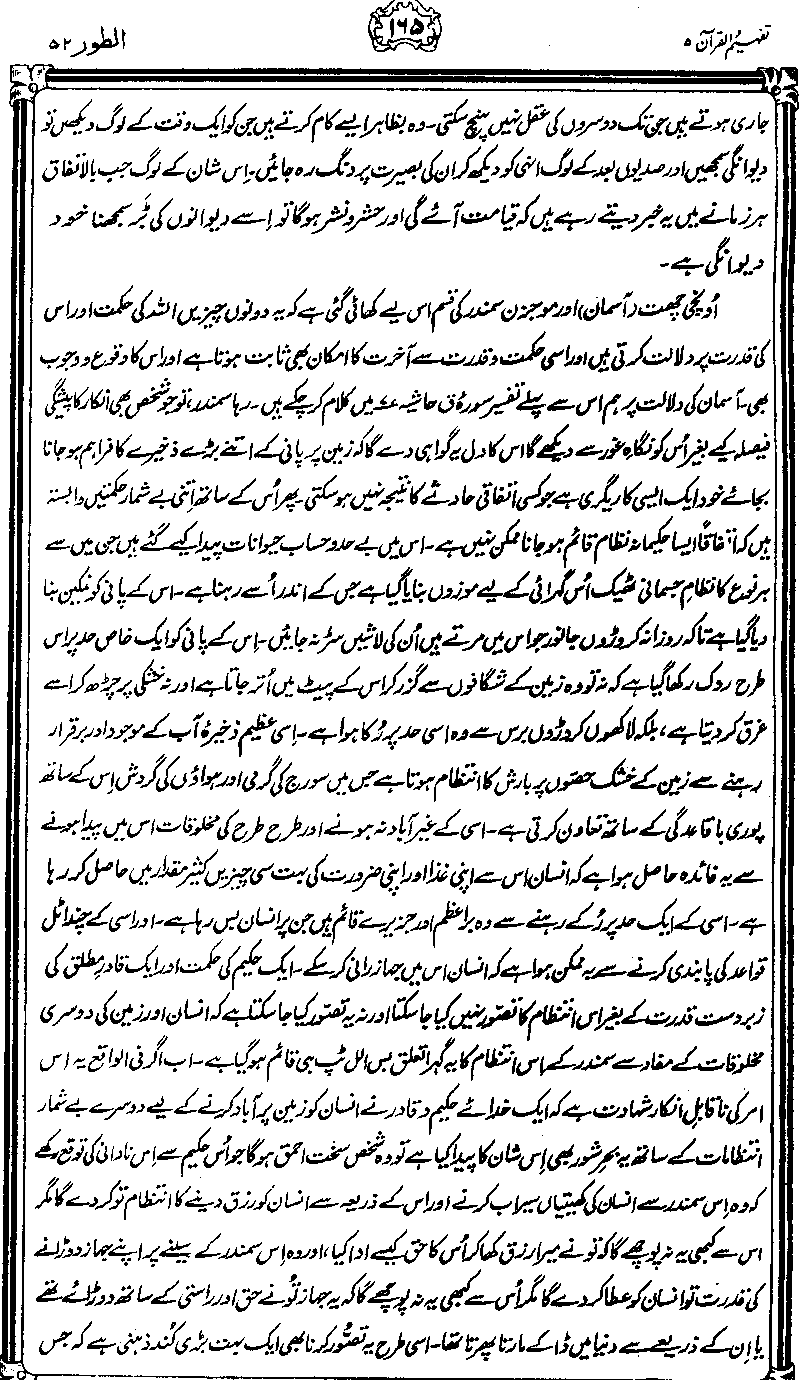 تفہیم القرآن ۵
۱۶۵
الطور ۵۲
جاری ہوتے ہیں جن تک دوسروں کی عقل نہیں پہنچ سکتی۔ وہ بظاہر ایسے کام کرتے ہیں جن کو ایک وقت کے لوگ دیکھیں تو
دیوانگی سمجھیں اور صدیوں بعد کے لوگ انہی کو دیکھ کر ان کی بصیرت پر دنگ رہ جائیں۔ اِس شان کے لوگ جب بالاتفاق
ہر زمانے میں یہ خبر دیتے رہے ہیں کہ قیامت آئے گی اور حشر و نشر ہوگا تو اسے دیوانوں کی بَڑ سمجھنا خود
دیوانگی ہے۔
اُونچی چھت (آسمان) اور موجزن سمندر کی قسم اس لیے کھائی گئی ہے کہ یہ دونوں چیزیں اللہ کی حکمت اور اس
کی قدرت پر دلالت کرتی ہیں اور اسی حکمت و قدرت سے آخرت کا امکان بھی ثابت ہوتا ہے اور اس کا وقوع و وجوب
بھی۔ آسمان کی دلالت پر ہم اس سے پہلے تفسیر سورۂ ق حاشیہ ۷ میں کلام کر چکے ہیں۔ رہا سمندر، تو جو شخص بھی انکار کا پیشگی
فیصلہ کیے بغیر اُس کو نگاہِ غور سے دیکھے گا اس کا دل یہ گواہی دے گا کہ زمین پر پانی کے اتنے بڑے ذخیرے کا فراہم ہو جانا
بجائے خود ایک ایسی کاریگری ہے جو کسی اتفاقی حادثے کا نتیجہ نہیں ہو سکتی۔ پھر اُس کے ساتھ اتنی بے شمار حکمتیں وابستہ
ہیں کہ اتفاقاً ایسا حکیمانہ نظام قائم ہو جانا ممکن نہیں ہے۔ اس میں بے حد و حساب حیوانات پیدا کیے گئے ہیں جن میں سے
ہر نوع کا نظامِ جسمانی ٹھیک اُس گہرائی کے لیے موزوں بنایا گیا ہے جس کے اندر اُسے رہنا ہے۔ اس کے پانی کو نمکین بنا
دیا گیا ہے تاکہ روزانہ کروڑوں جانور جو اس میں مرتے ہیں اُن کی لاشیں سڑ نہ جائیں۔ اِس کے پانی کو ایک خاص حد پر اس
طرح روک رکھا گیا ہے کہ نہ تو وہ زمین کے شگافوں سے گزر کر اس کے پیٹ میں اُتر جاتا ہے اور نہ خشکی پر چڑھ کر اسے
غرق کر دیتا ہے، بلکہ لاکھوں کروڑوں برس سے وہ اسی حد پر رُکا ہوا ہے۔ اِسی عظیم ذخیرۂ آب کے موجود اور برقرار
رہنے سے زمین کے خشک حصّوں پر بارش کا انتظام ہوتا ہے جس میں سورج کی گرمی اور ہواؤں کی گردش اِس کے ساتھ
پوری باقاعدگی کے ساتھ تعاون کرتی ہے۔ اسی کے غیر آباد نہ ہونے اور طرح طرح کی مخلوقات اس میں پیدا ہونے
سے یہ فائدہ حاصل ہوا ہے کہ انسان اس سے اپنی غذا اور اپنی ضرورت کی بہت سی چیزیں کثیر مقدار میں حاصل کر رہا
ہے۔ اسی کے ایک حد پر رُکے رہنے سے وہ براعظم اور جزیرے قائم ہیں جن پر انسان بس رہا ہے۔ اور اسی کے چند اٹل
قواعد کی پابندی کرنے سے یہ ممکن ہوا ہے کہ انسان اس میں جہاز رانی کر سکے۔ ایک حکیم کی حکمت اور ایک قادرِ مطلق کی
زبردست قدرت کے بغیر اِس انتظام کا تصوّر نہیں کیا جا سکتا اور نہ یہ تصوّر کیا جا سکتا ہے کہ انسان اور زمین کی دوسری
مخلوقات کے مفاد سے سمندر کے اِس انتظام کا یہ گہرا تعلق بس الل ٹپ ہی قائم ہو گیا ہے۔ اب اگر فی الواقع یہ اس
امر کی ناقابلِ انکار شہادت ہے کہ ایک خدائے حکیم و قادر نے انسان کو زمین پر آباد کرنے کے لیے دوسرے بے شمار
انتظامات کے ساتھ یہ بحرِ شور بھی اِس شان کا پیدا کیا ہے تو وہ شخص سخت احمق ہوگا جو اُس حکیم سے اِس نادانی کی توقع رکھے
کہ وہ اِس سمندر سے انسان کی کھیتیاں سیراب کرنے اور اس کے ذریعہ سے انسان کو رزق دینے کا انتظام تو کر دے گا مگر
اس سے کبھی یہ نہ پوچھے گا کہ تو نے میرا رزق کھا کر اُس کا حق کیسے ادا کیا، اور وہ اِس سمندر کے سینے پر اپنے جہاز دوڑانے
کی قدرت تو انسان کو عطا کر دے گا مگر اُس سے کبھی یہ نہ پوچھے گا کہ یہ جہاز تُو نے حق اور راستی کے ساتھ دوڑائے تھے
یا اِن کے ذریعے سے دنیا میں ڈاکے مارتا پھرتا تھا۔ اسی طرح یہ تصوّر کرنا بھی ایک بہت بڑی کُند ذہنی ہے کہ جس